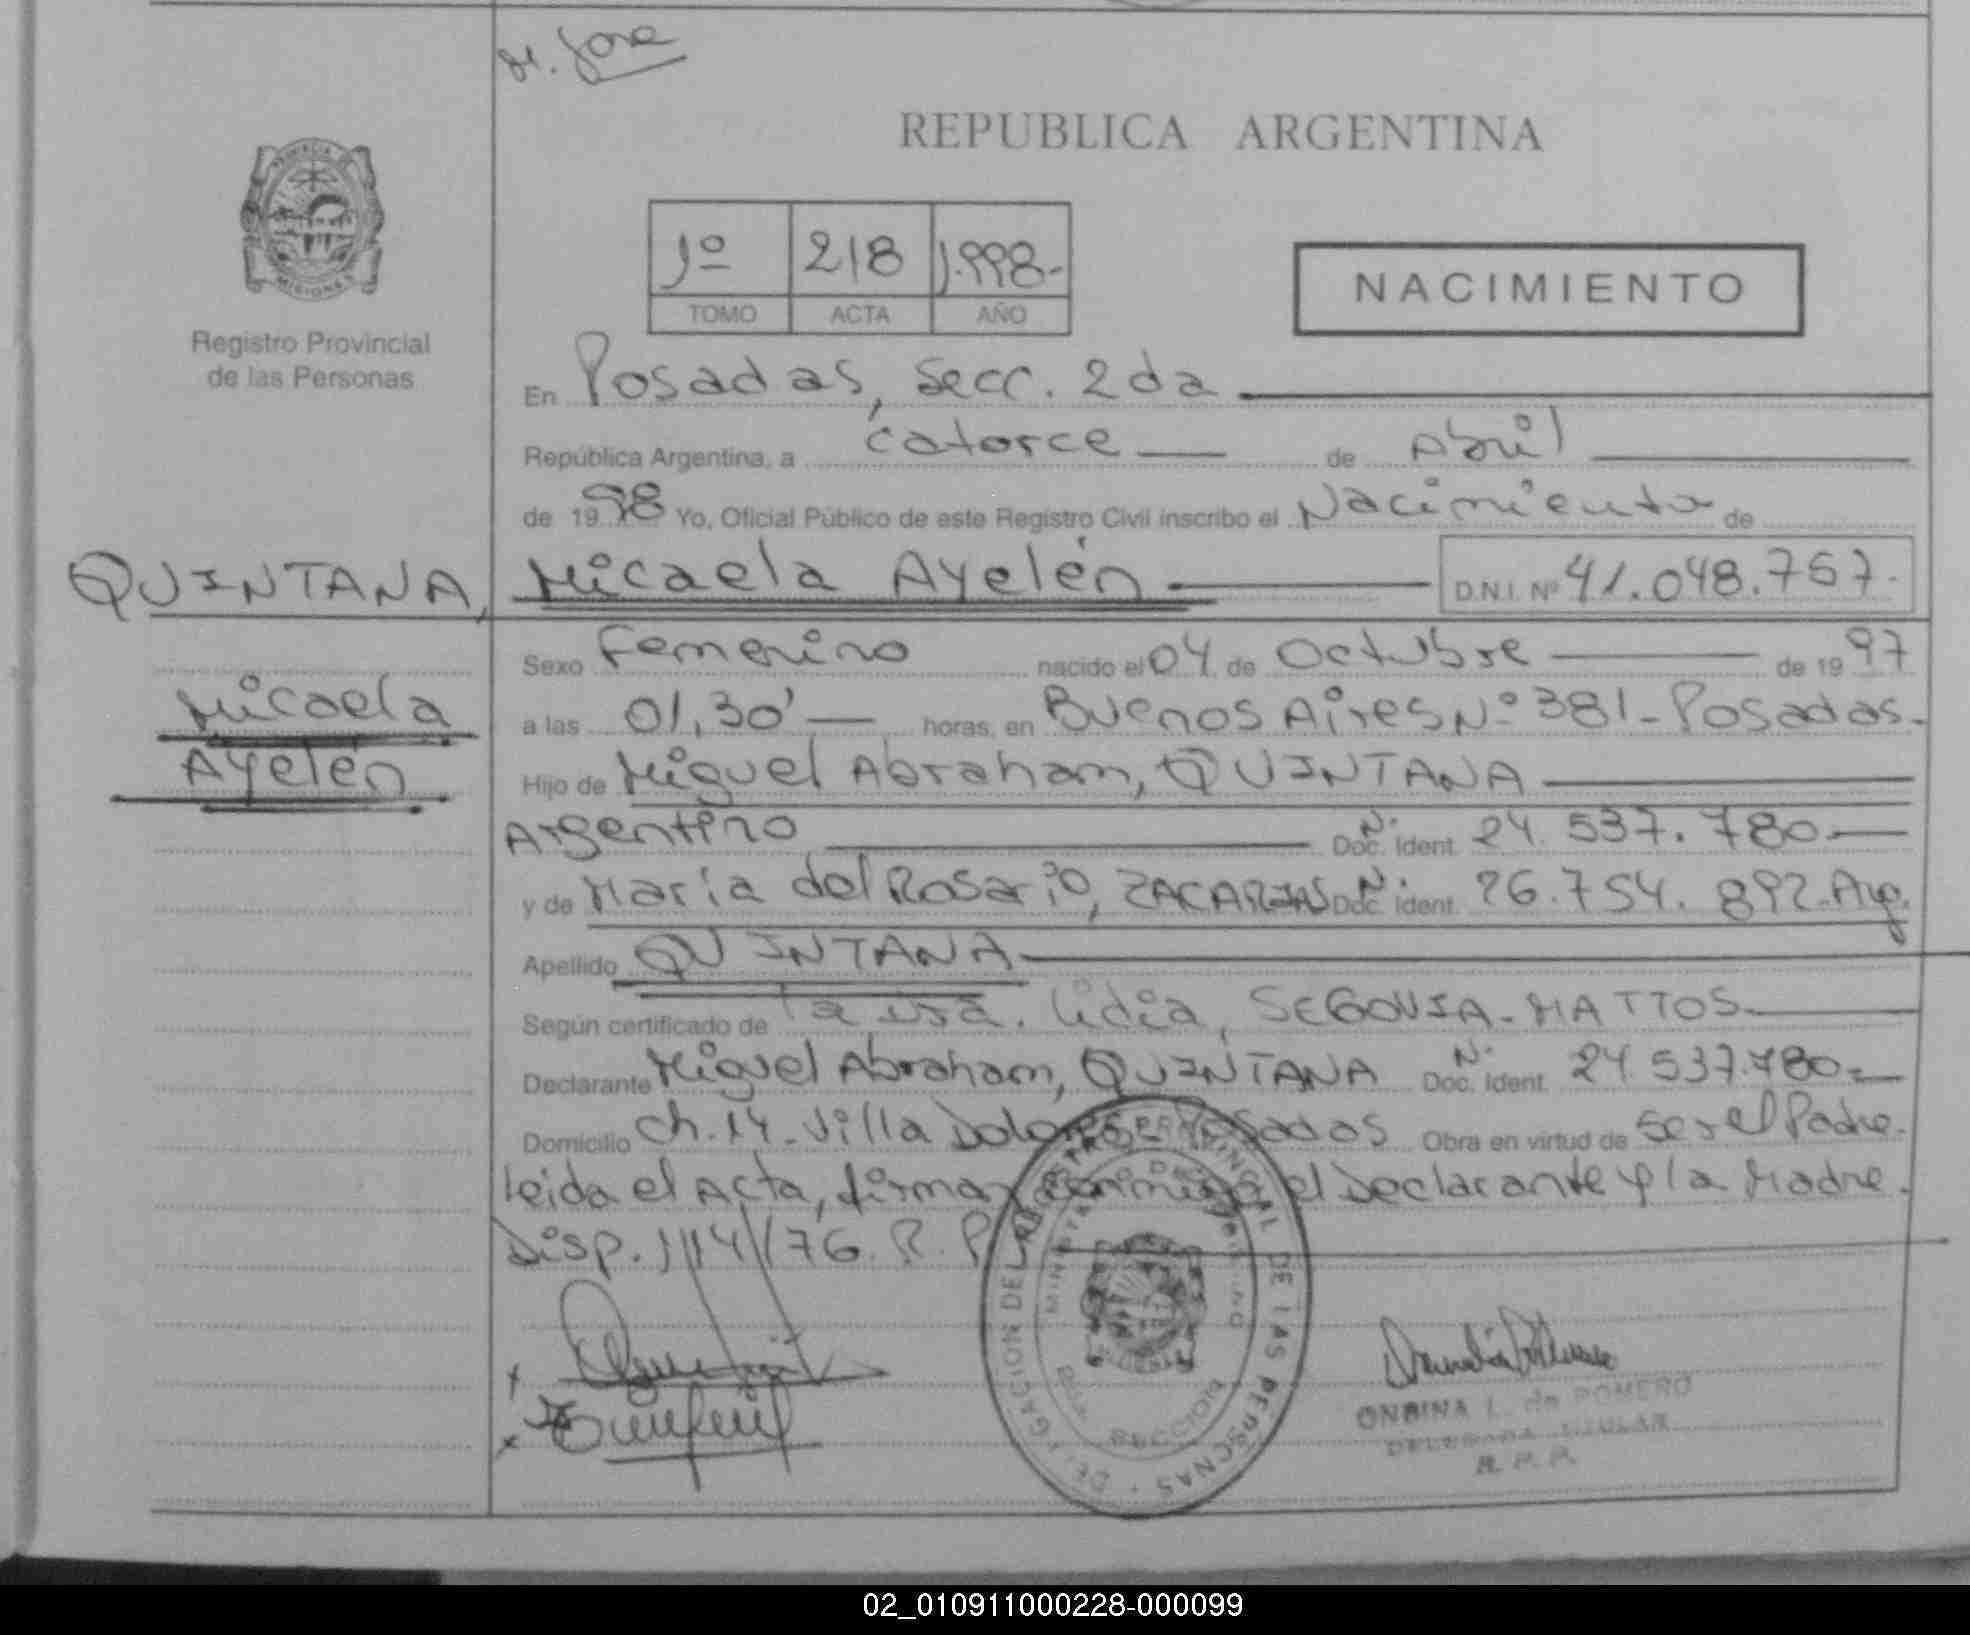 M. Jose
REPUBLICA ARGENTINA
1º 218 1.998.-
TOMO ACTA AÑO
NACIMIENTO
PROVINCIA DE MISIONES
Registro Provincial
de las Personas
En Posadas, Secc. 2da
República Argentina, a catorce de Abril
de 1998 Yo, Oficial Público de este Registro Civil inscribo el Nacimiento de
QUINTANA, Micaela Ayelén D.N.I. Nº 41.048.767.
Micaela
Ayelén
Sexo Femenino nacido el 04 de Octubre de 1997
a las 01,30' horas, en Buenos Aires Nº 381 - Posadas.
Hijo de Miguel Abraham, QUINTANA
Argentino N. Doc. Ident. 24.537.780
y de María del Rosario, ZACARIAS N. Doc. Ident. 26.754.892. Arg.
Apellido QUINTANA
Según certificado de la Lidia, SEGOVIA - MATTOS
Declarante Miguel Abraham, QUINTANA N. Doc. Ident. 24.537.780
Domicilio Ch. 14 - Villa Dolores - Posadas Obra en virtud de ser el Padre.
leida el Acta, firman conmigo el Declarante y la Madre.
Disp. 1114/76. R. P.
DELEGACION DEL REGISTRO PROVINCIAL DE LAS PERSONAS
MINISTERIO DE
SECCION
ONBINA L. de ROMERO
DELEGADA TITULAR
R. P. P.
02_010911000228-000099